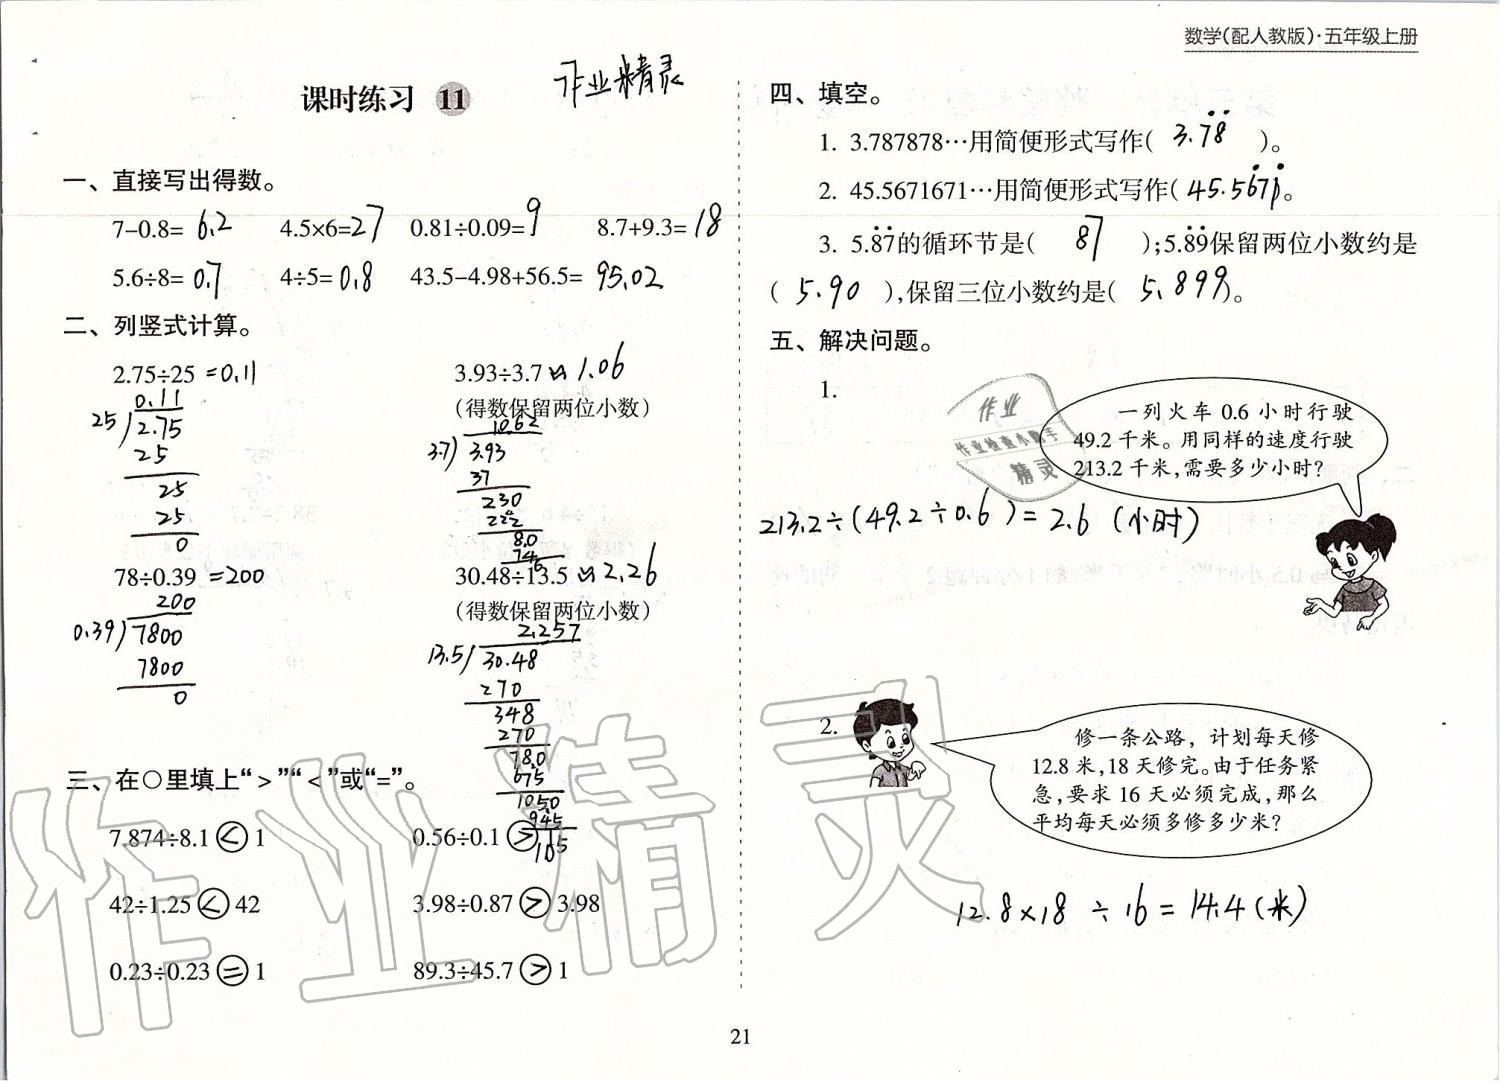 数学(配人教版)·五年级上册
课时练习 11
作业精灵
一、直接写出得数。
7−0.8= 6.2 4.5×6=27 0.81÷0.09=9 8.7+9.3=18
5.6÷8= 0.7 4÷5=0.8 43.5−4.98+56.5= 95.02
二、列竖式计算。
2.75÷25 =0.11
0.11
25 2.75
25
25
25
0
3.93÷3.7≈1.06
(得数保留两位小数)
1.062
3.7 3.93
37
230
222
80
74
6
78÷0.39 =200
200
0.39 7800
7800
0
30.48÷13.5≈2.26
(得数保留两位小数)
2.257
13.5 30.48
270
348
270
780
675
1050
945
105
三、在○里填上“>”“<”或“=”。
7.874÷8.1 < 1 0.56÷0.1 > 1
42÷1.25 < 42 3.98÷0.87 > 3.98
0.23÷0.23 = 1 89.3÷45.7 > 1
四、填空。
1. 3.787878…用简便形式写作( 3.7̇8̇ )。
2. 45.5671671…用简便形式写作(45.56̇71̇)。
3. 5.8̇7̇的循环节是( 87 );5.8̇9̇保留两位小数约是
( 5.90 ),保留三位小数约是( 5.899)。
五、解决问题。
1.
一列火车 0.6 小时行驶
49.2 千米。用同样的速度行驶
213.2 千米,需要多少小时?
作业
作业检查小助手
精灵
213.2÷(49.2÷0.6)=2.6(小时)
2.
修一条公路，计划每天修
12.8 米,18 天修完。由于任务紧
急,要求 16 天必须完成,那么
平均每天必须多修多少米?
12.8×18÷16=14.4(米)
作业精灵
21